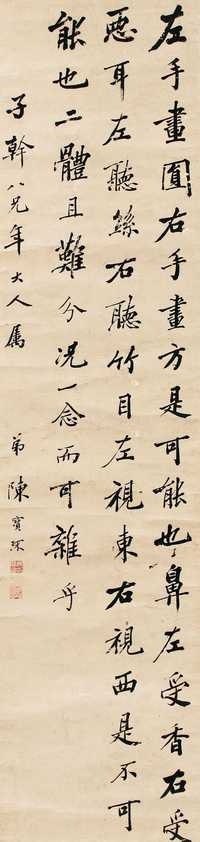 左手畫圓右手畫方是可能也鼻左受香右受
惡耳左聽絲右聽竹目左視東右視西是不可
能也二體且難分況一念而可雜乎
子幹八兄年大人屬
弟陳寶琛